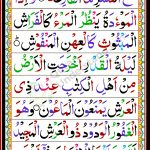 الْمَوْءٗدَةُ يَنْظُرُ الْمَرْءُ كَالْفَرَاشِ
الْمَبْثُوْثِ كَالْعِهْنِ الْمَنْفُوْشِ
لَيْلَةُ الْقَدْرِ اَخْرَجَتِ الْاَرْضُ
مِنْ اَهْلِ الْكِتٰبِ عِنْدَ ذِى
الْعَرْشِ يَمْنَعُوْنَ الْمَاعُوْنَ وَهُوَ
الْغَفُوْرُ الْوَدُوْدُ ذُو الْعَرْشِ الْمَجِيْدُ